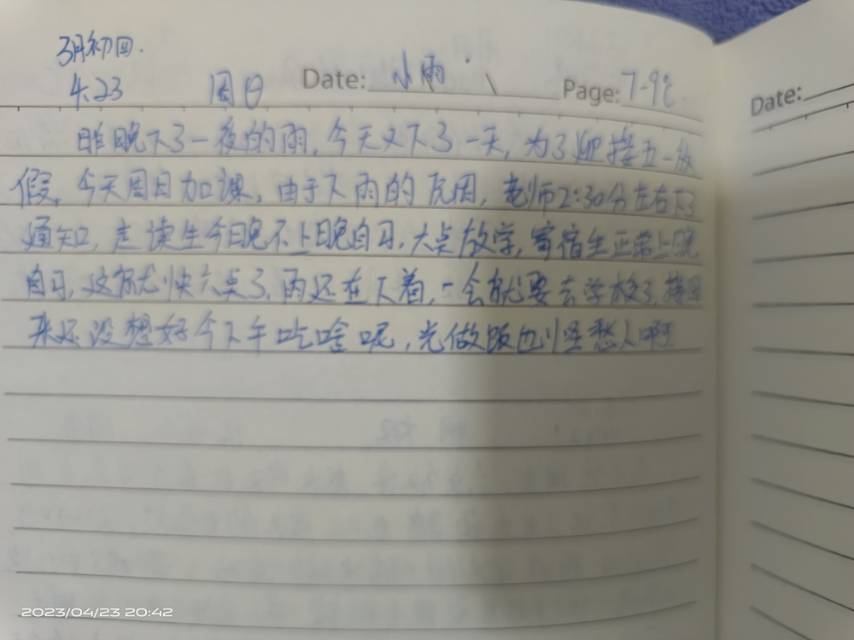 3月初四.
4.23 周日 Date: 小雨 Page: 7-9℃ Date:
昨晚下了一夜的雨,今天又下了一天,为了迎接五一放
假,今天周日加课,由于下雨的原因,老师2:30分左右下了
通知,走读生今日晚不上晚自习,六点放学,寄宿生正常上晚
自习,这就快六点了,雨还在下着,一会就要去学校了,接回
来还没想好今下午吃啥呢,光做饭也怪愁人啊
2023/04/23 20:42